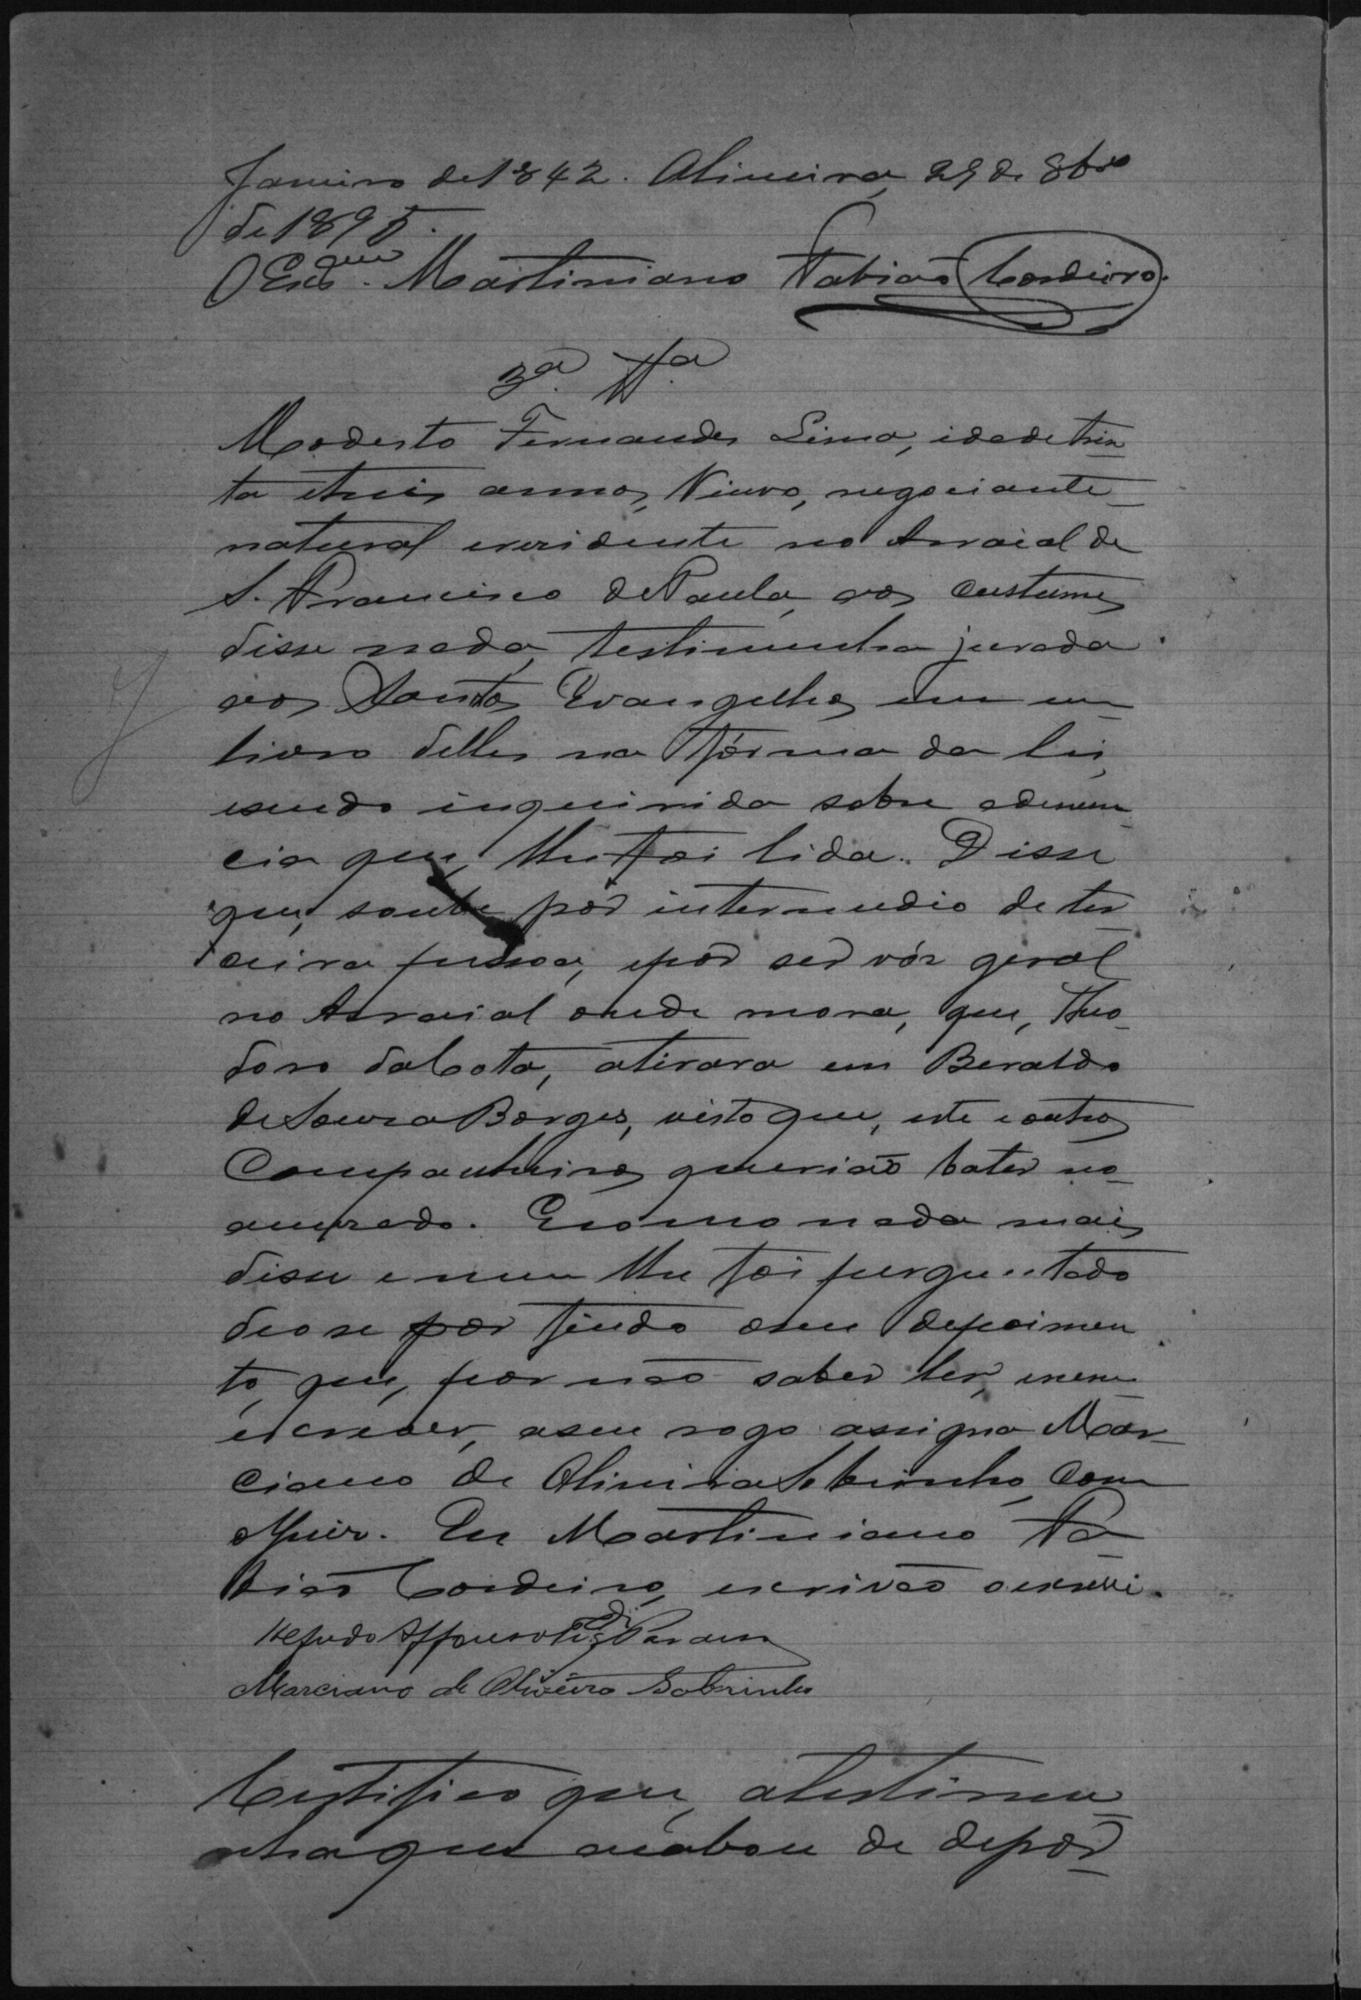 Janeiro de 1842. Oliveira, 29 de 8bro
de 1895.
O Escam. Martiniano Fabião Cordeiro.
3ª. Tª.
Modesto Fernandes Lima, idade trin
ta e tres annos, Viuvo, negociante
natural e residente no Arraial de
S. Francisco de Paula, aos custumes
disse nada, testimunha jurada
aos Santos Evangelhos em um
livro delles na fórma da lei,
e sendo inquirida sobre a denun
cia que, lhe foi lida. Disse
que, soube por intermedio de ter
ceira pessoa, e por ser vóz geral
no Arraial onde mora, que, Theo
doro da Cota, atirara em Beraldo
de Souza Borges, visto que, este e outros
Companheiros querião bater no
accuzado. E como nada mais
disse e nem lhe foi perguntado
deo se por findo o seu depoimen
to, que, por não saber ler, e nem
escrever, a seu rogo assigna Mar-
ciano de Oliveira Sobrinho, com
o Juiz. Eu Martiniano Fa
bião Cordeiro, escrivão o escrevi.
Affonso
Marciano de Oliveira Sobrinho
Certifico que, a testimu
nha que acabou de depôr